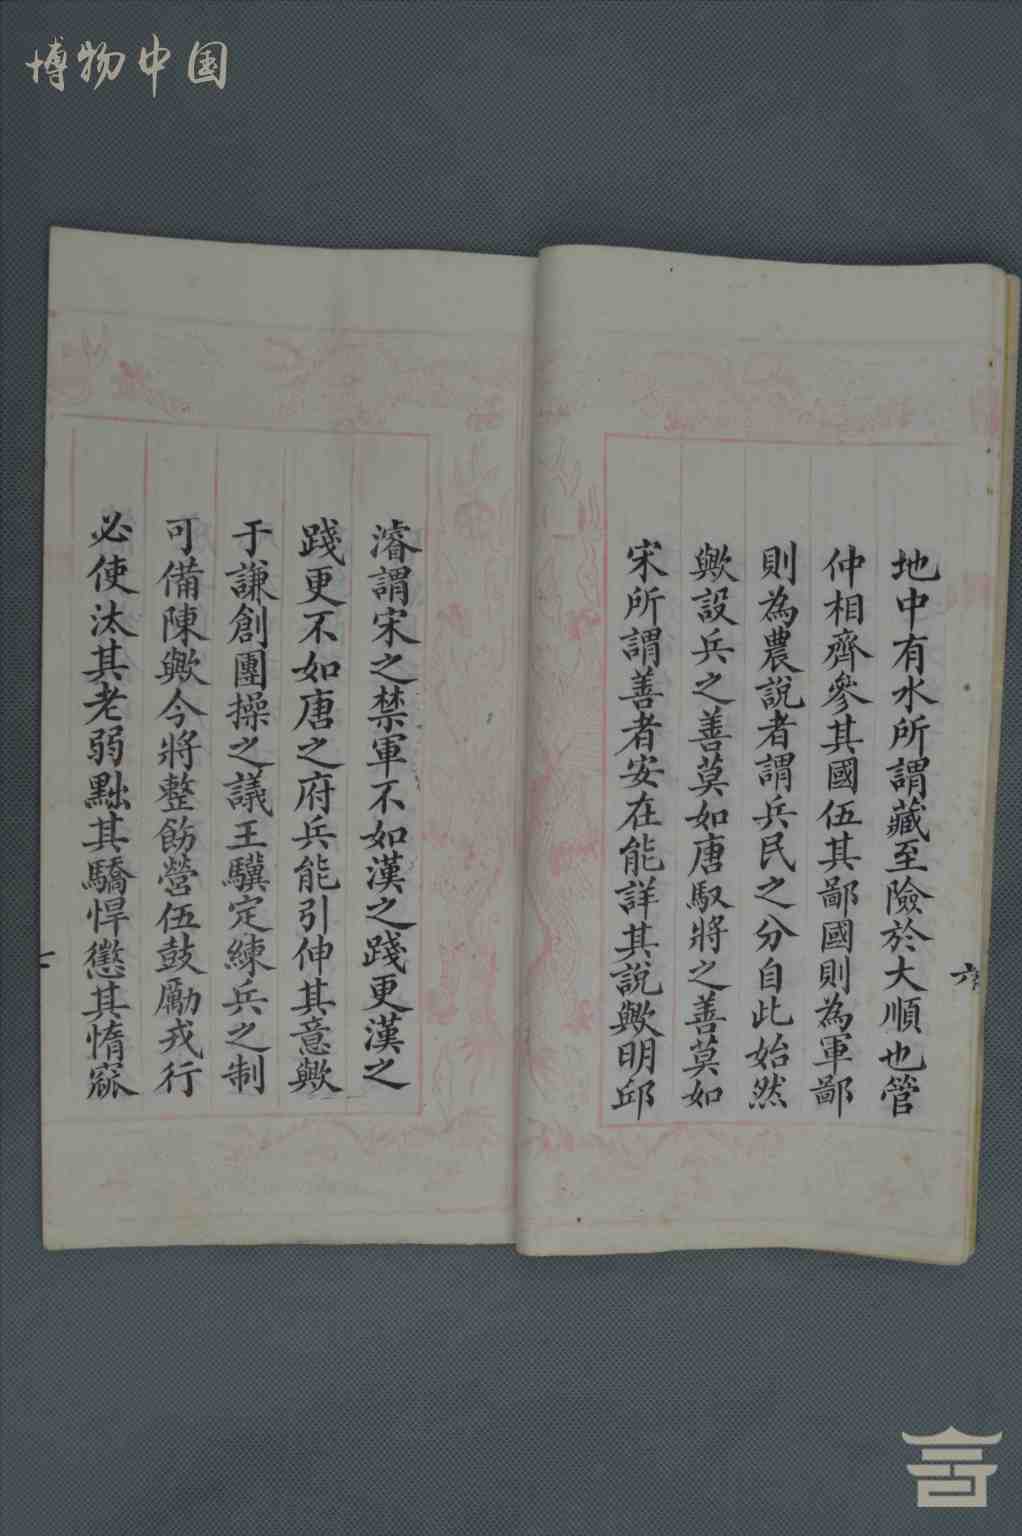 博物中国
地中有水所謂藏至險於大順也管
仲相齊參其國伍其鄙國則為軍鄙
則為農說者謂兵民之分自此始然
歟設兵之善莫如唐馭將之善莫如
宋所謂善者安在能詳其說歟明邱
濬謂宋之禁軍不如漢之踐更漢之
踐更不如唐之府兵能引伸其意歟
于謙創團操之議王驥定練兵之制
可備陳歟今將整飭營伍鼓勵戎行
必使汰其老弱黜其驕悍懲其惰窳
六
七